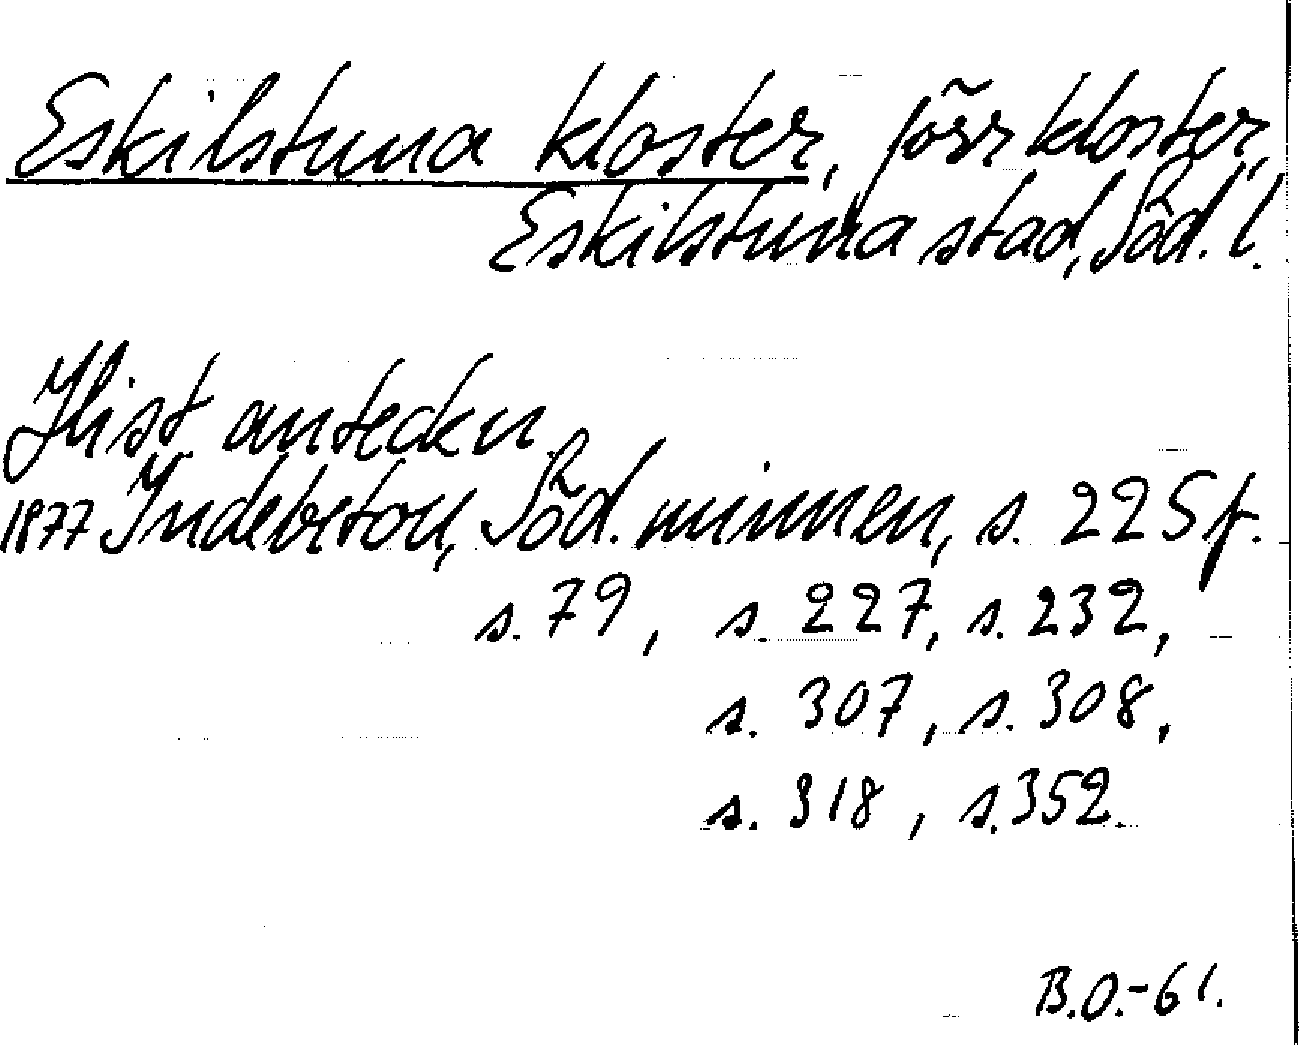 Eskilstuna kloster, förr kloster,
Eskilstuna stad, Söd. l.
Hist. anteckn.
1877 Indebetou, Söd. minnen, s. 225 f.
s. 79, s. 227, s. 232,
s. 307, s. 308,
s. 318, s. 352.
B.O.-61.